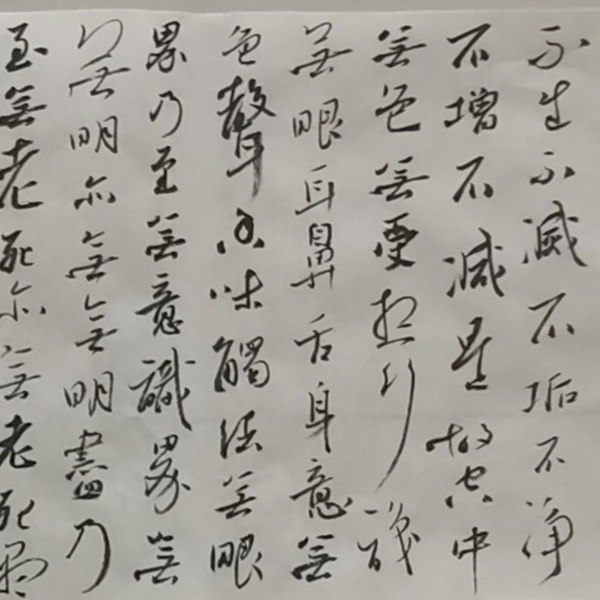 不生不滅不垢不淨
不增不減是故空中
無色無受想行識
無眼耳鼻舌身意無
色聲香味觸法無眼
界乃至無意識界無
無明亦無無明盡乃
至無老死亦無老死盡